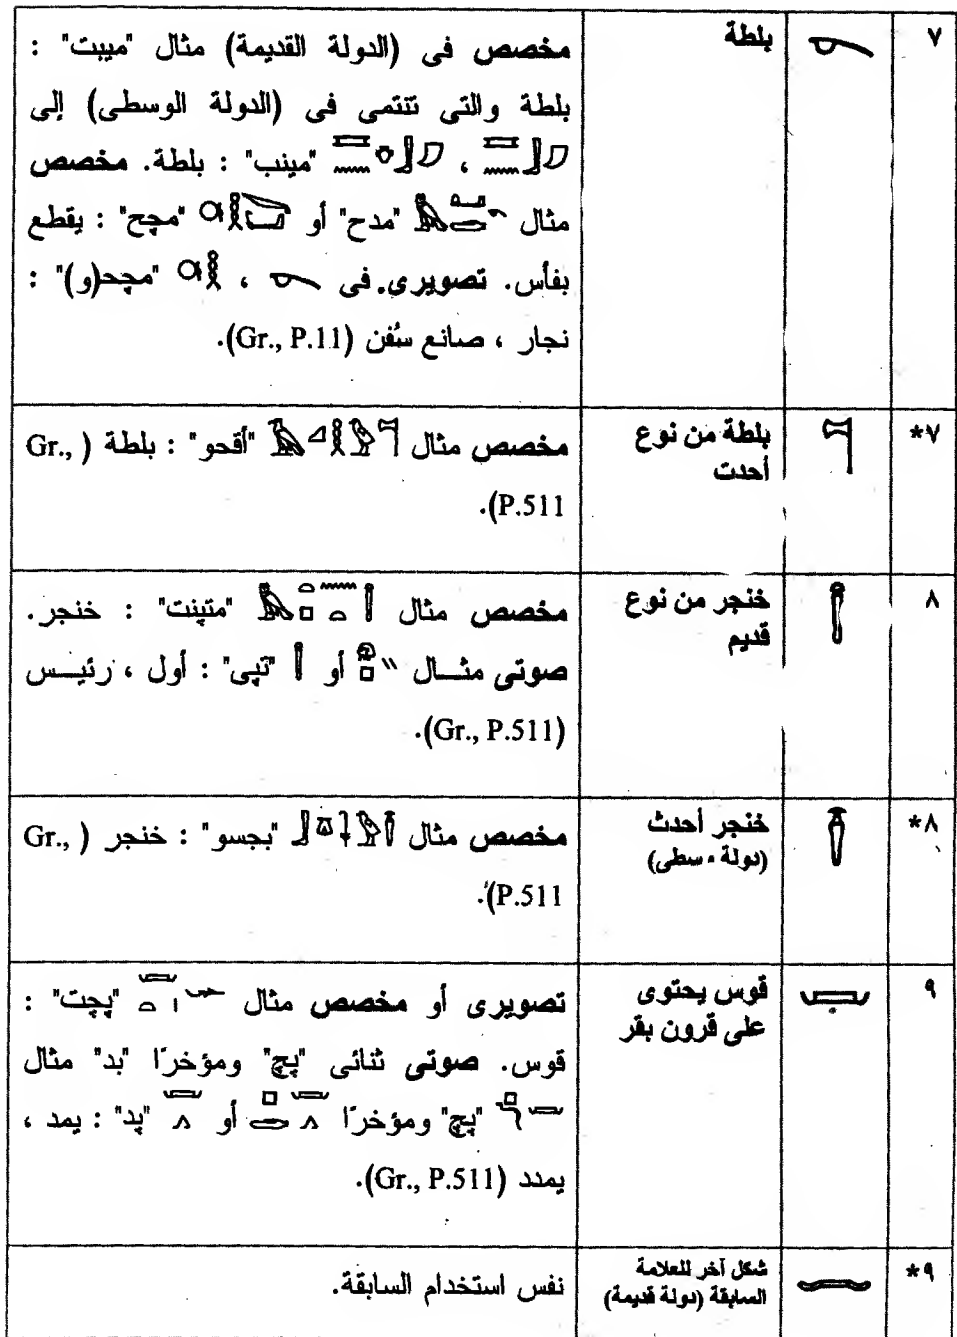 ٧
بلطة
مخصص فى (الدولة القديمة) مثال "ميبت" :
بلطة والتى تنتمى فى (الدولة الوسطى) إلى
، "مينب" : بلطة. مخصص
مثال "مدح" أو "مچح" : يقطع
بفأس. تصويرى فى ، "مچحـ(و)" :
نجار ، صانع سُفن (Gr., P.11).
*٧
بلطة من نوع
أحدت
مخصص مثال "أقحو" : بلطة (Gr.,
P.511).
٨
خنجر من نوع
قديم
مخصص مثال "متپنت" : خنجر.
صوتى مثـــال أو "تپى" : أول ، رئيــس
(Gr., P.511).
*٨
خنجر أحدث
(دولة وسطى)
مخصص مثال "بجسو" : خنجر (Gr.,
P.511).
٩
قوس يحتوى
على قرون بقر
تصويرى أو مخصص مثال "پچت" :
قوس. صوتى ثنائى "پچ" ومؤخرًا "بد" مثال
"پچ" ومؤخرًا أو "پد" : يمد ،
يمدد (Gr., P.511).
*٩
شكل آخر للعلامة
السابقة (دولة قديمة)
نفس استخدام السابقة.